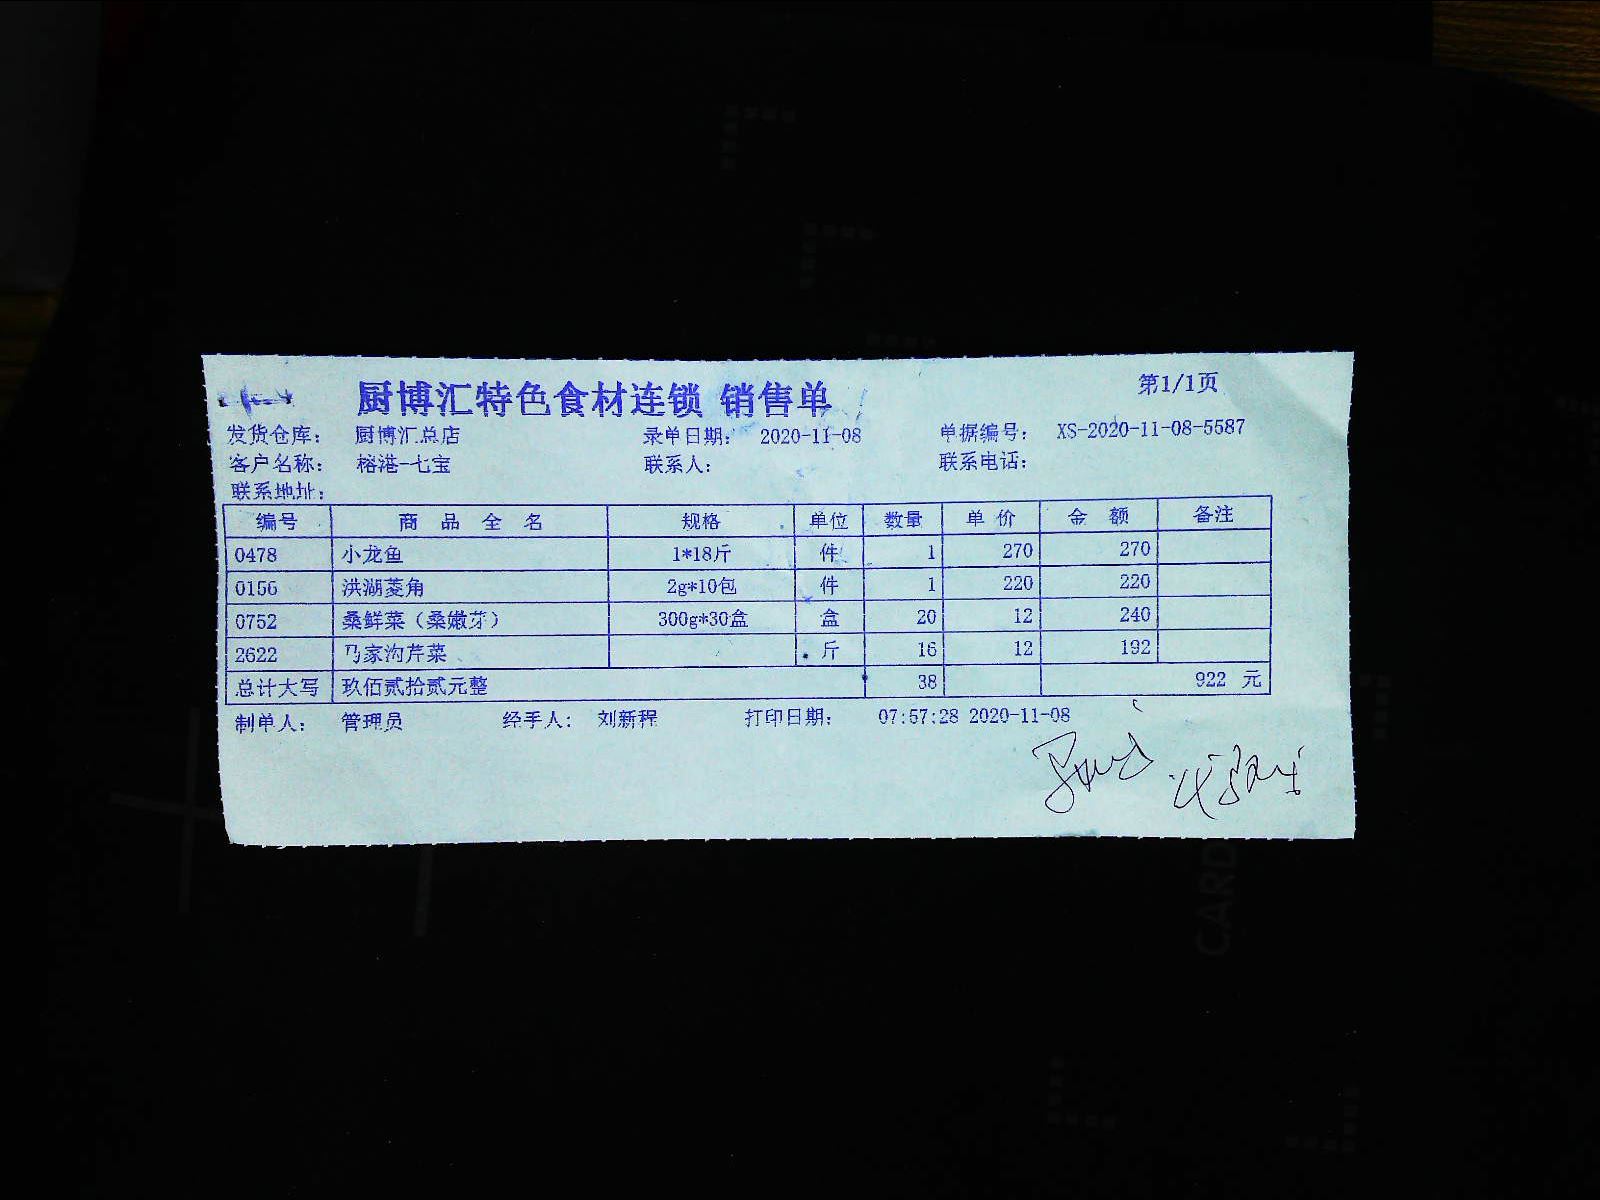 厨博汇特色食材连锁 销售单 第1/1页
发货仓库: 厨博汇总店 录单日期: 2020-11-08 单据编号: XS-2020-11-08-5587
客户名称: 榕港-七宝 联系人: 联系电话:
联系地址:
编号 商品全名 规格 单位 数量 单价 金额 备注
0478 小龙鱼 1*18斤 件 1 270 270
0156 洪湖菱角 2g*10包 件 1 220 220
0752 桑鲜菜（桑嫩芽） 300g*30盒 盒 20 12 240
2622 马家沟芹菜 斤 16 12 192
总计大写 玖佰贰拾贰元整 38 922 元
制单人: 管理员 经手人: 刘新程 打印日期: 07:57:28 2020-11-08
CARD